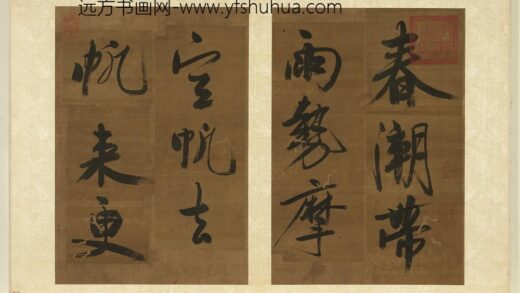 远方书画网-www.yfshuhua.com
春潮带
雨勢摩
空帆去
帆来更